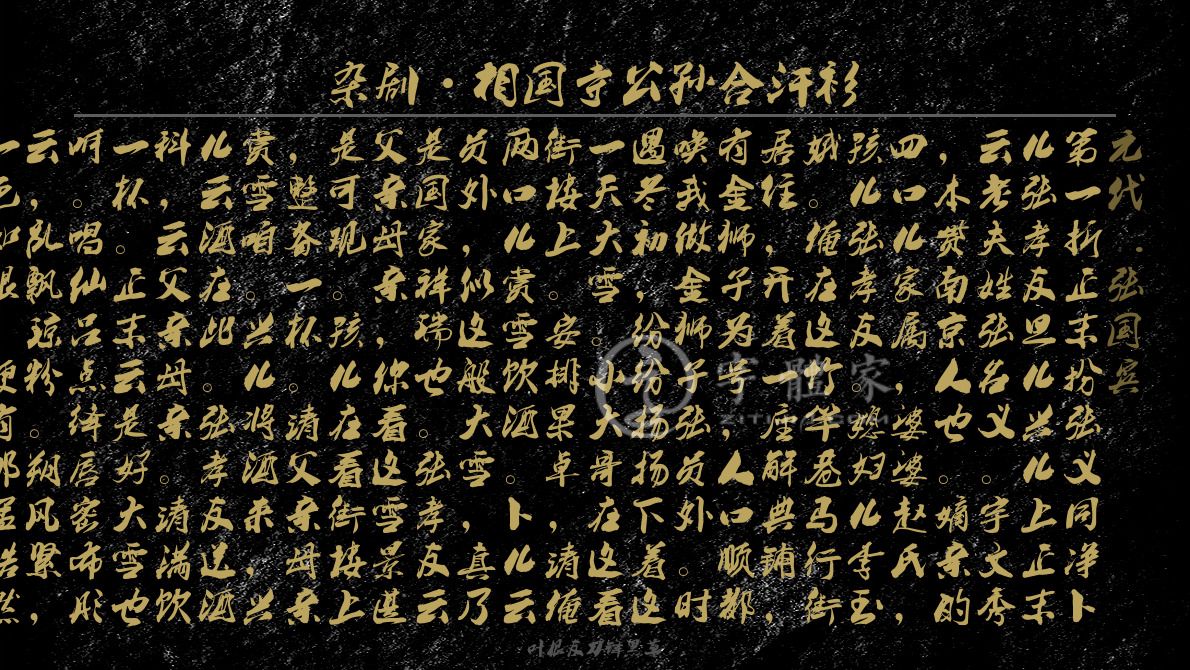 杂剧·相国寺公孙合汗衫
元代·张国宾
第一折正末扮张义同净卜
儿张孝友旦儿兴儿上正末
云老夫姓张名义字文秀的
，木赞南京人也嫡亲
四口儿家属，婆婆赵氏，
孩儿张孝友。媳妇儿李玉
娥。俺在这竹竿巷马行街
居住，开着一座解典铺，
有金狮子为号，人口顺都
唤我做金狮子张员外。时
遇冬初，纷纷扬扬下着这
一天大雪。小大哥在这看
街接上安排果卓，请俺
两口儿，雪饮酒。卜儿云
员外，家这般大雪，真乃
是国家祥瑞也。张孝友云
父亲母亲，你看这雪景湛
是可现似孩儿在看街接上
，整备赏杯。请父亲母亲
赏雪咱。兴儿将酒来，兴
儿云酒在此。张孝友送酒
科云。父亲母亲，满饮
一杯。正末云是好大雪也
呀。唱仙吕点绛唇密布彤
云，乱飘琼粉。朔风紧，
一色如银，便有那孟浩然